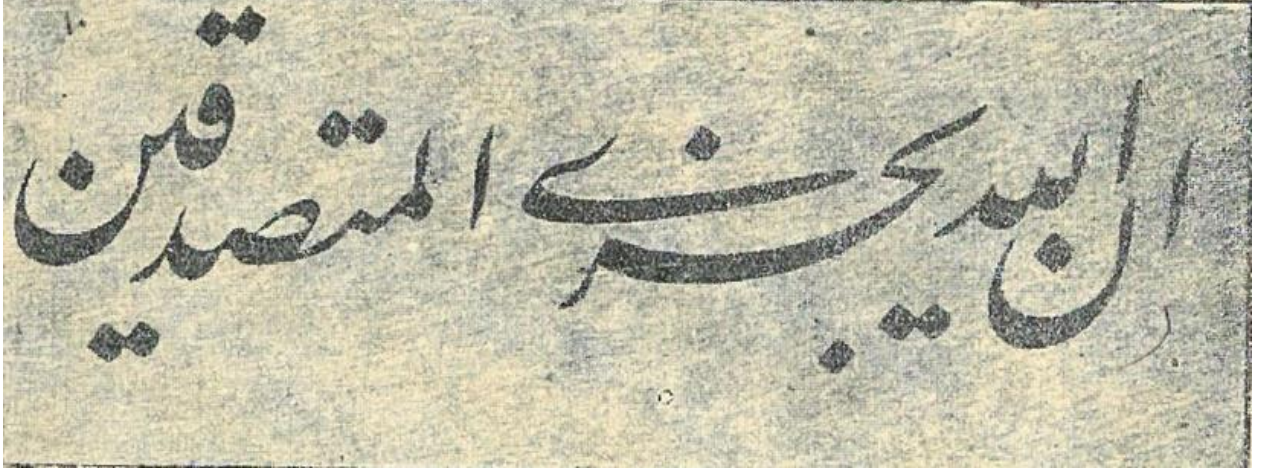 ان الله یجزی المتصدقین